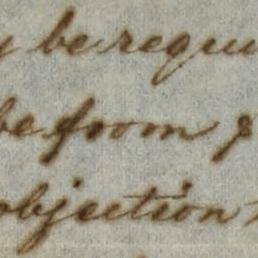 y be requi
be from &
objection